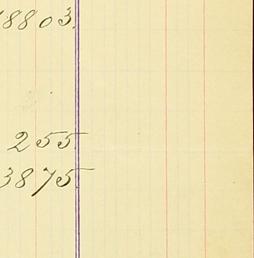 18803.
255.
3875.